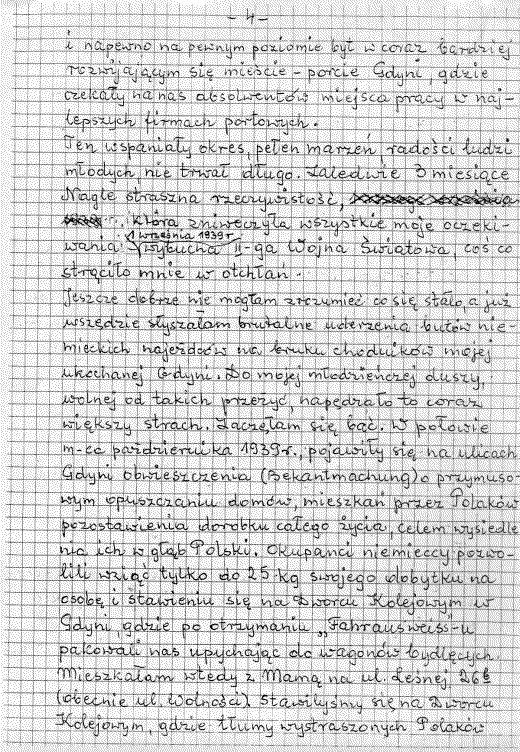 - 4 -
i napewno na pewnym poziomie był w coraz bardziej
rozwijającym się mieście - porcie Gdyni, gdzie
czekały na nas absolwentów miejsca pracy w naj-
lepszych firmach portowych.
Ten wspaniały okres, pełen marzeń, radości ludzi
młodych nie trwał długo. Zaledwie 3 miesiące
Nagle straszna rzeczywistość,
która zniweczyła wszystkie moje oczeki-
1 września 1939 r.
wania. wybucha II-ga Wojna Światowa, coś co
strąciło mnie w otchłań.
Jeszcze dobrze nie mogłam zrozumieć co się stało, a już
wszędzie słyszałam brutalne uderzenia butów nie-
mieckich najeźdców na bruku chodników mojej
ukochanej Gdyni. Do mojej młodzieńczej duszy,
wolnej od takich przeżyć, napędzało to coraz
większy strach. Zaczęłam się bać. W połowie
m-ca października 1939 r., pojawiły się na ulicach
Gdyni obwieszczenia (Bekantmachung) o przymuso-
wym opuszczaniu domów, mieszkań przez Polaków
pozostawienia dorobku całego życia, celem wysiedle
nia ich w głąb Polski. Okupanci niemieccy pozwo-
lili wziąć tylko do 25 kg swojego dobytku na
osobę i stawieniu się na Dworcu Kolejowym w
Gdyni, gdzie po otrzymaniu „Fahrausweiss"-u
pakowali nas upychając do wagonów bydlęcych.
Mieszkałam wtedy z Mamą na ul. Leśnej 26b
(obecnie ul. Wolności). Stawiłyśmy się na Dworcu
Kolejowym, gdzie tłumy wystraszonych Polaków